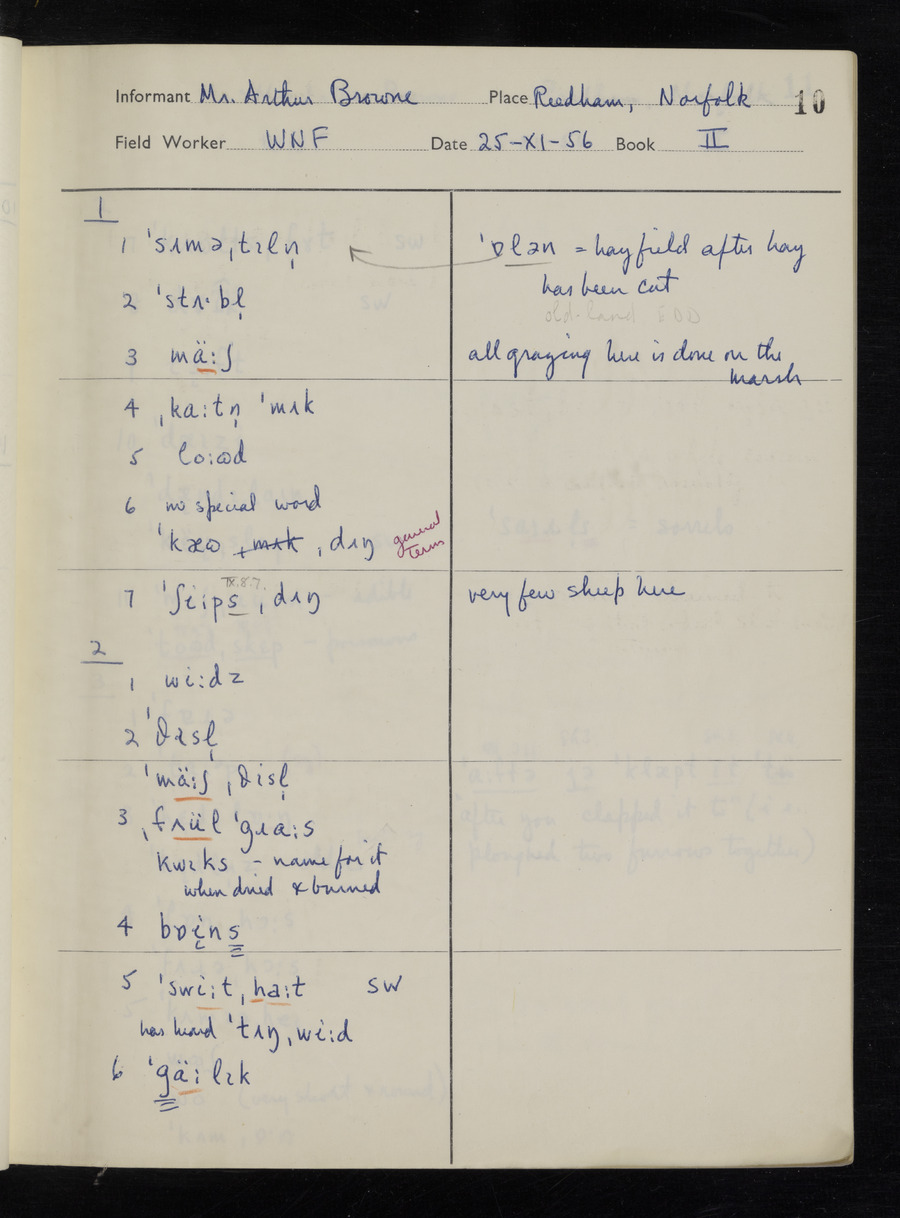 Informant Mr. Arthur Browne Place Reedham, Norfolk 10
Field Worker WNF Date 25-XI-56 Book II
1
1 ˈsɪmə,tɪlṇ ˈɒlən = hayfield after hay
has been cut
2 ˈstʌ·bl̩ old-land EDD
3 mä:ʃ all grazing here is done on the
marsh
4 ˌka:tṇ ˈmʌk
5 lo:ɷd
6 no special word
ˈkæɷ ˌmʌk ˌdʌŋ general term
IX.8.7.
7 ˈʃi:ps ˌdʌŋ very few sheep here
2
1 wi:dz
2 ˈθɪsl̩
ˈmä:ʃ ˌθisl̩
3 ˌfʌül ˈgɹa:s
kwɪks – name for it
when dried & burned
4 bɒins
5 ˈswi:t ˌha:t SW
has heard ˈtʌŋ ˌwi:d
6 ˈgä:lɪk